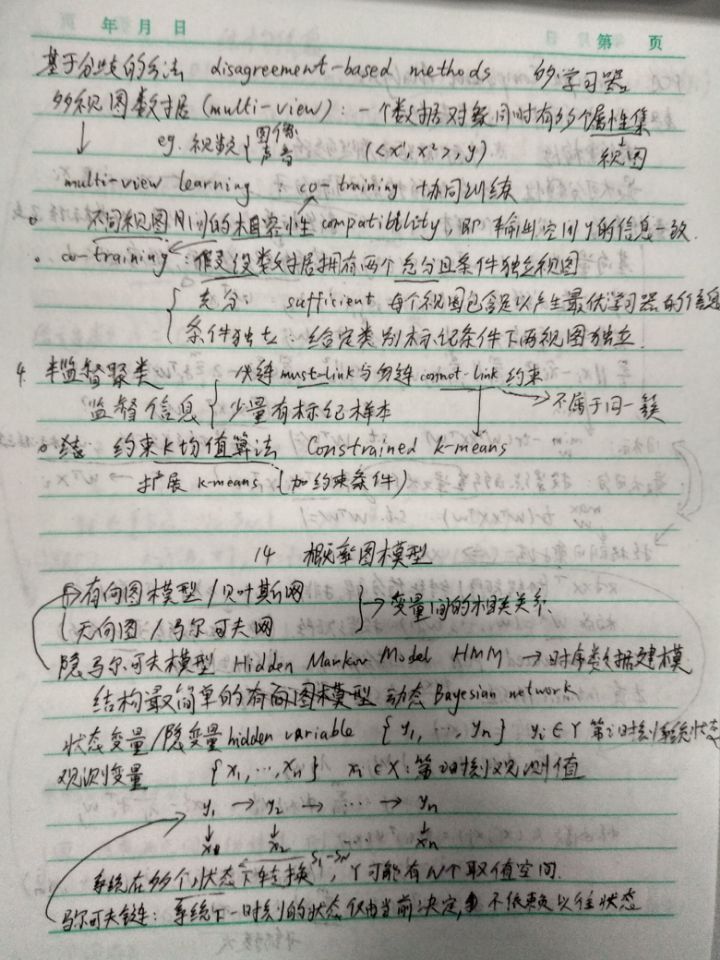 年 月 日
第 页
基于分歧的方法 disagreement-based methods 多学习器
多视图数据(multi-view): 一个数据对象同时有多个属性集
eg. 视频{图像 声音 (<x¹, x²>, y) 视图
multi-view learning : co-training 协同训练
不同视图间的相容性 compatibility, 即 输出空间y的信息一致.
co-training : 假设数据拥有两个充分且条件独立视图
{充分: sufficient 每个视图包含足以产生最优学习器的信息
条件独立: 给定类别标记条件下两视图独立.
4. 半监督聚类 必连 must-link 与勿连 connot-link 约束
监督信息{少量有标记样本 不属于同一簇
约束k均值算法 Constrained k-means
扩展 k-means (加约束条件)
14 概率图模型
有向图模型/贝叶斯网 }→变量间的相关关系
无向图/马尔可夫网
隐马尔可夫模型 Hidden Markov Model HMM → 时序数据建模
结构最简单的有向图模型 动态 Bayesian network
状态变量/隐变量 hidden variable {y₁, ..., yₙ} yᵢ ∈ Y 第i时刻系统状态
观测变量 {x₁, ..., xₙ} xᵢ ∈ X: 第i时刻观测值
y₁ → y₂ → ... → yₙ
↓ ↓ ↓
x₁ x₂ xₙ
系统在多个状态下转换 S₁-Sₙ, Y可能有N个取值空间.
马尔可夫链: 系统下一时刻的状态仅由当前决定, 不依赖以往状态